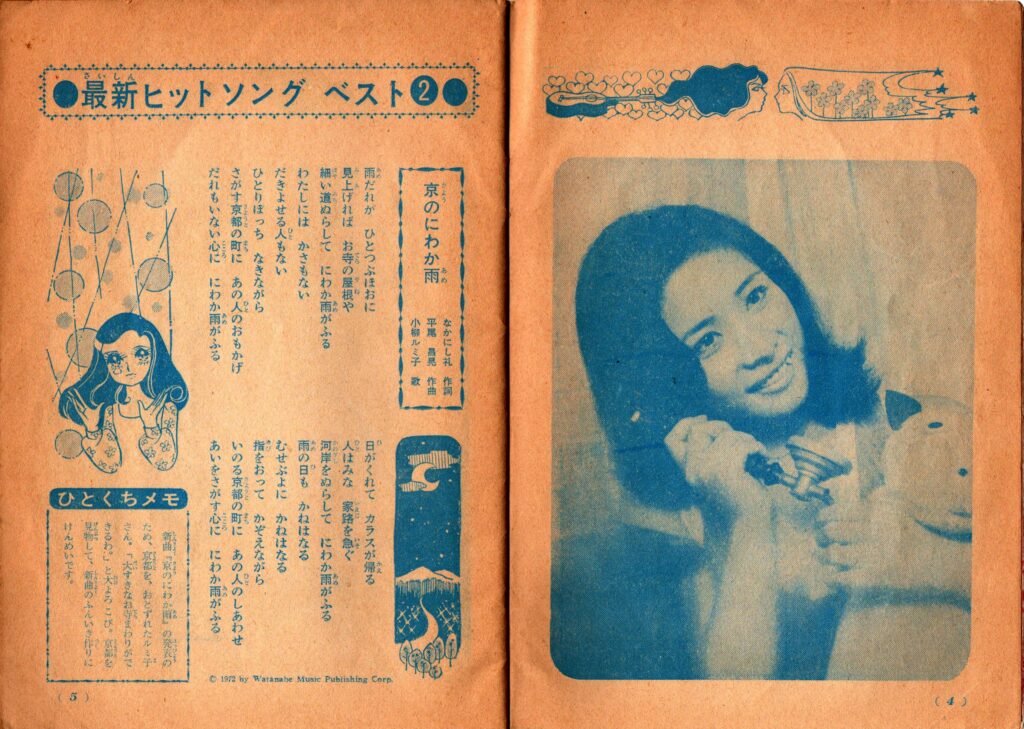 ( 4 )
最新ヒットソング ベスト②
京のにわか雨
なかにし礼 作詞
平尾昌晃 作曲
小柳ルミ子 歌
雨だれが ひとつぶほおに
見上げれば お寺の屋根や
細い道ぬらして にわか雨がふる
わたしには かさもない
だきよせる人もない
ひとりぼっち なきながら
さがす京都の町に あの人のおもかげ
だれもいない心に にわか雨がふる
日がくれて カラスが帰る
人はみな 家路を急ぐ
河岸をぬらして にわか雨がふる
雨の日も かねはなる
むせぶよに かねはなる
指をおって かぞえながら
いのる京都の町に あの人のしあわせ
あいをさがす心に にわか雨がふる
© 1972 by Watanabe Music Publishing Corp.
ひとくちメモ
新曲『京のにわか雨』の発表の
ため、京都を、おとずれたルミ子
さん。「大すきなお寺まわりがで
きるわ。」と大よろこび。京都を
見物して、新曲のふんいき作りに
けんめいです。
( 5 )